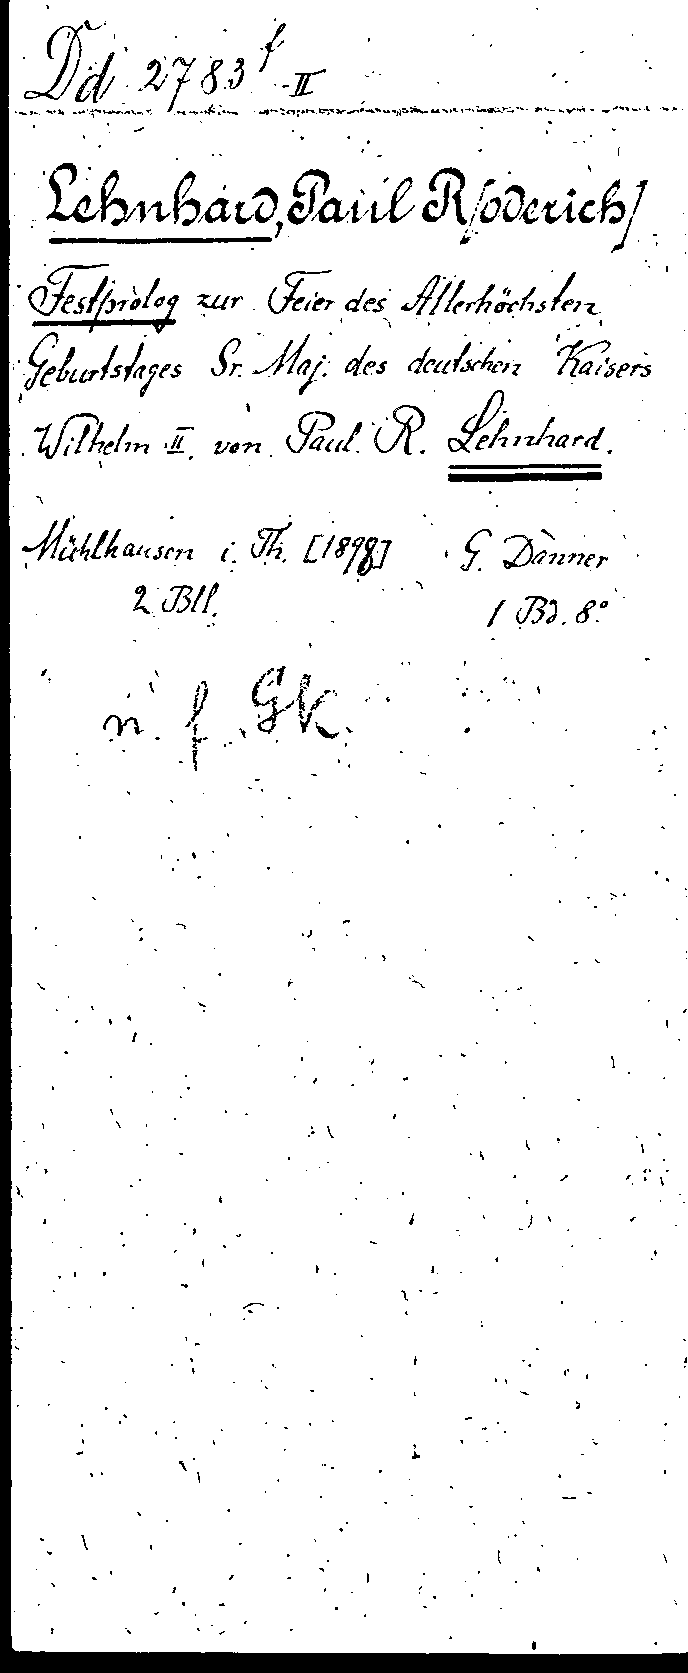 Dd 2783 f II
Lehnhard, Paul R[oderich]
Festprolog zur Feier des Allerhöchsten
Geburtstages Sr. Maj. des deutschen Kaisers
Wilhelm II. von Paul R. Lehnhard.
Mühlhausen i. Th. [1898] G. Danner
2 Bll. 1 Bd. 8°
n. f. GK.